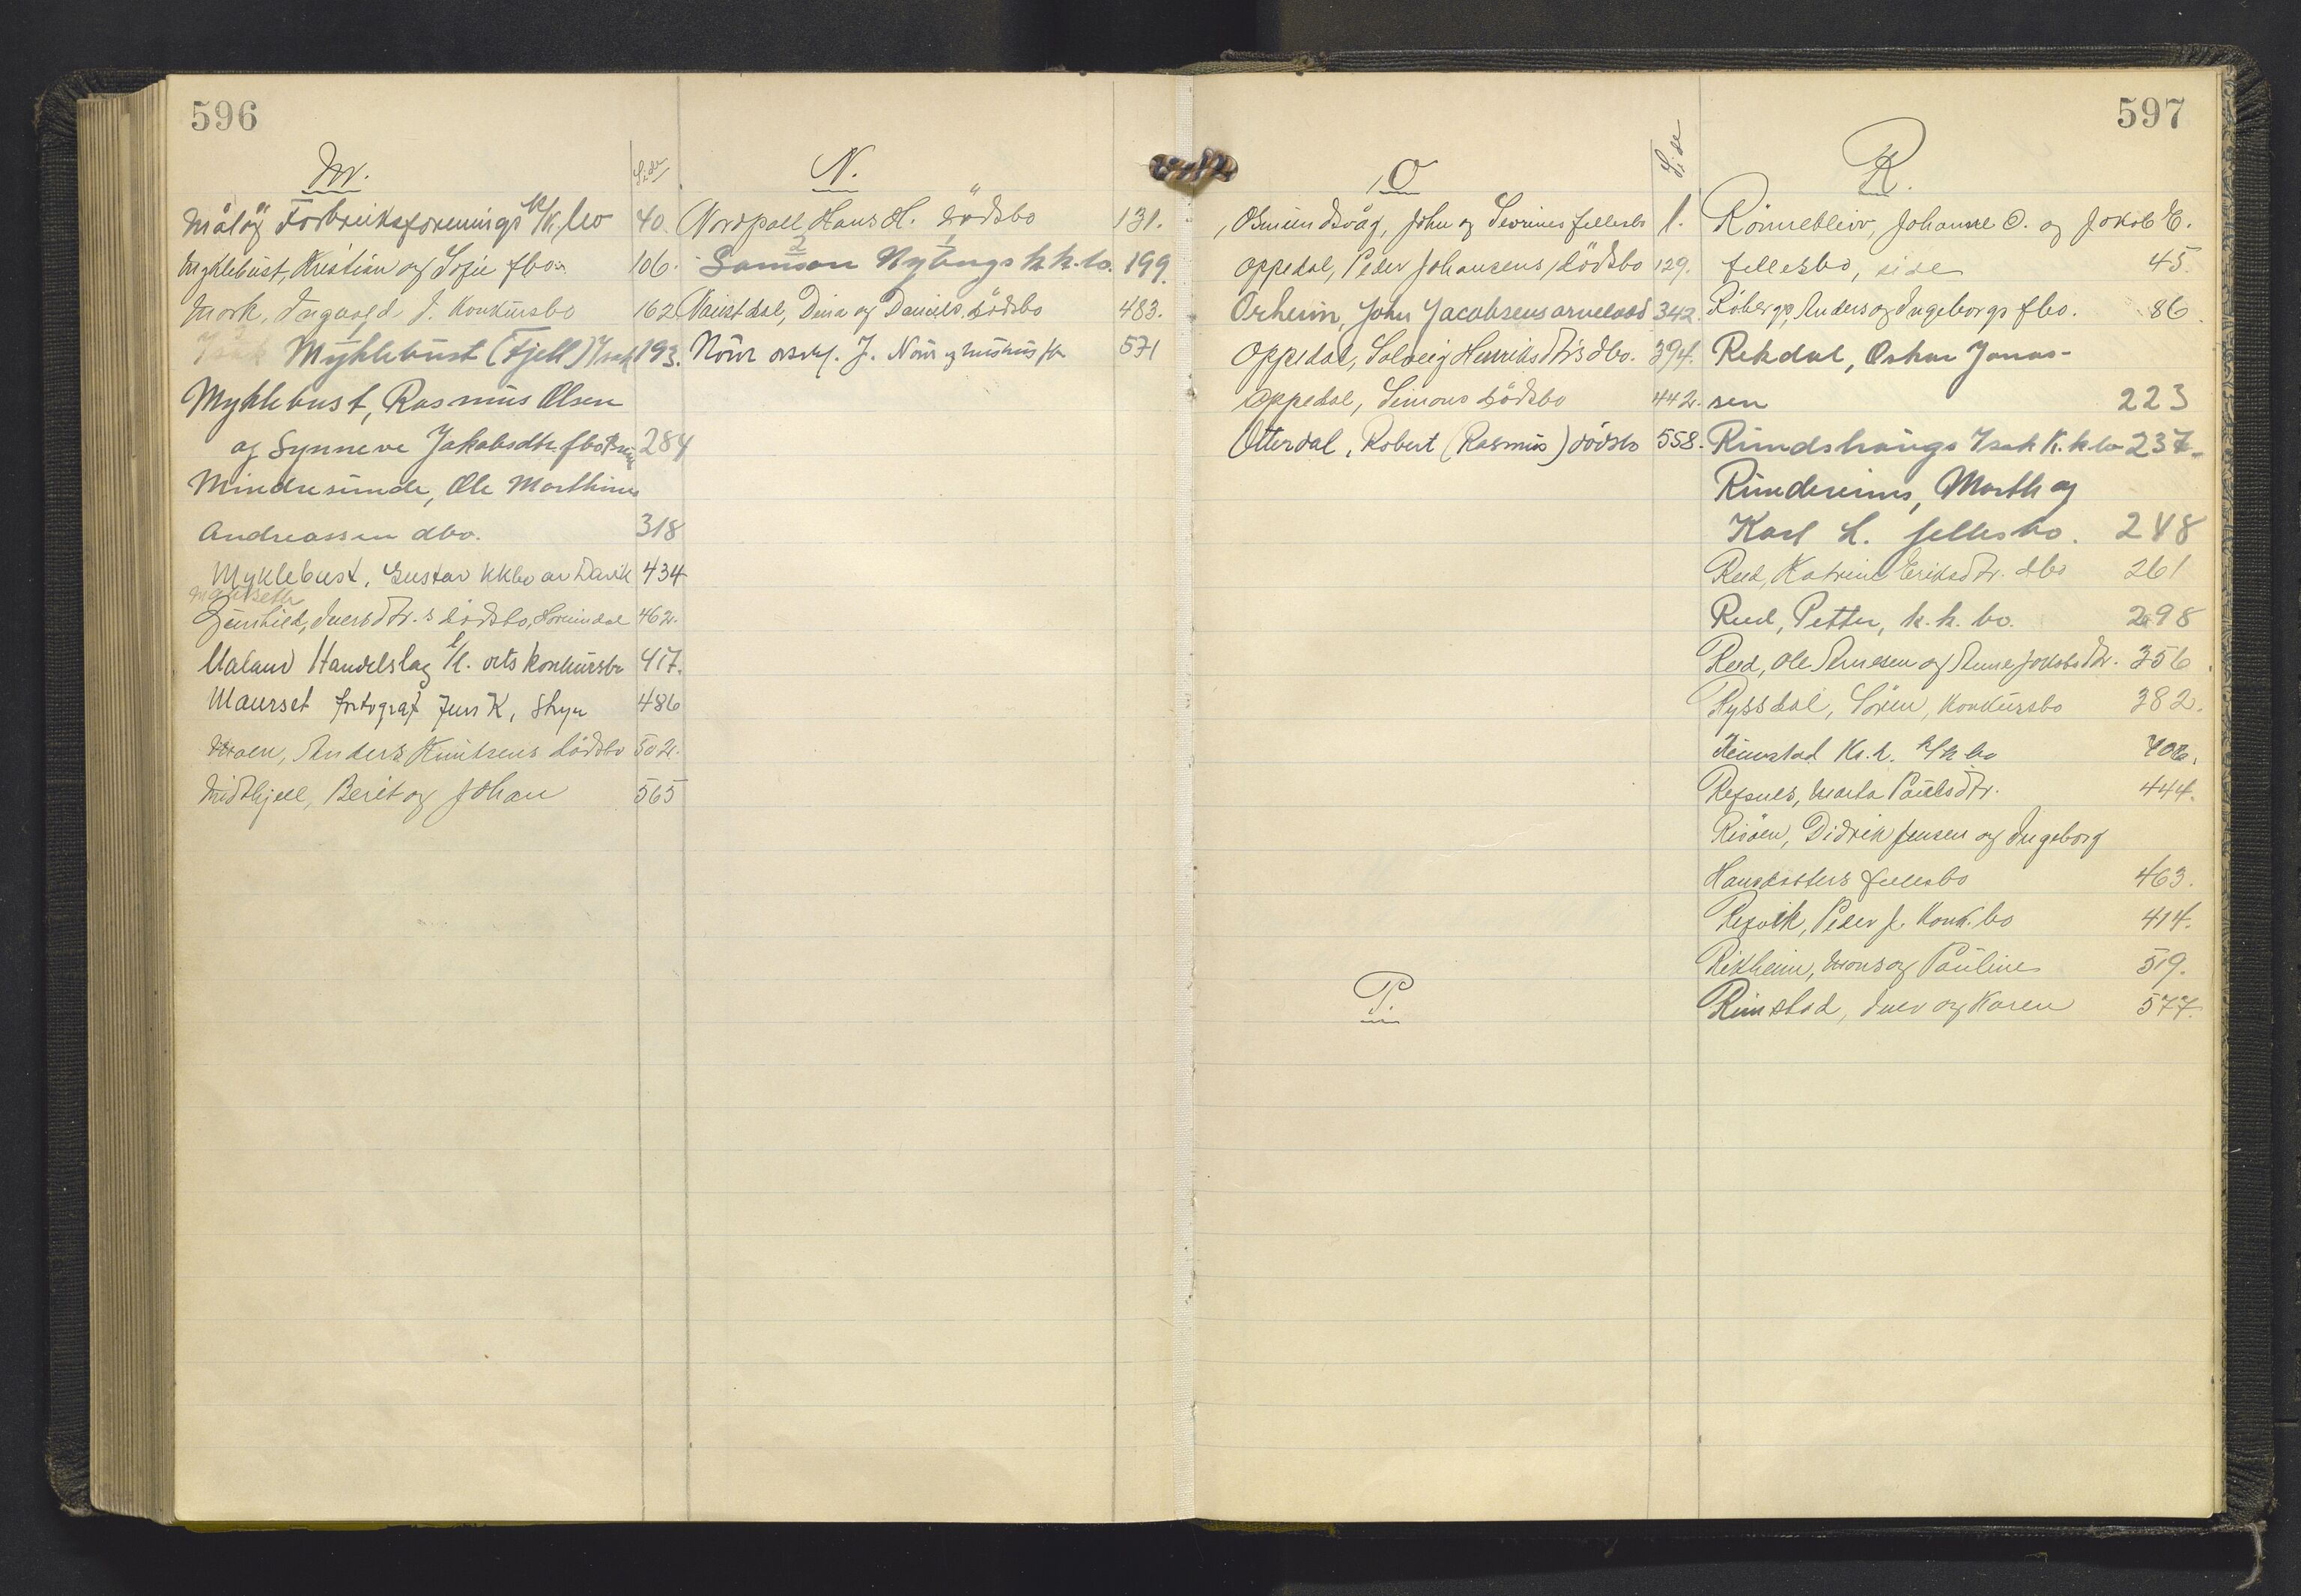 596
M.
Side
Måløy Forbruksforenings k/k. bo 40.
Myklebust, Kristian og Sofie fbo. 106.
Mork, Ingvald J. Konkursbo 162
Myklebust (Fjell) Isak 193.
Myklebust, Rasmus Olsen
og Synneve Jakobsdtr. fbo 284
Mindresunde, Ole Marthinus
Andreassen dbo. 318
Myklebust, Gustav kkbo av Davik 434
Maurseth
Gunhild, Iversdtr.s dødsbo, Hornindal 462.
Maland Handelslag L/L. dets konkursbo 417.
Maurset fotograf Jens K, Stryn 486
Moen, Anders Knutsens dødsbo 502.
Midthjell, Berit og Johan 565
N.
Nordpoll Hans H. dødsbo 131.
2 1
Samson Nybugs k.k.bo. 199.
Naustdal, Dina og Daniels dødsbo 483.
Nour J. Nour og hustrus fbo 571
597
O
Side
Osmundsvåg, John og Severines fellesbo 1.
Oppedal, Peder Johansens, dødsbo 129.
Orheim, John Jacobsens arvelodd 342.
Oppedal, Solveig Henriksdtr's dbo. 394.
Oppedal, Simons dødsbo 442.
Otterdal, Robert (Rasmus) dødsbo 558.
P.
R.
Rönnekleiv, Johanne O. og Jakob E.
fellesbo, side 45.
Röbergs, Anders og Ingeborgs fbo. 86.
Rekdal, Oskar Jonas-
sen 223
Rundshaugs Isak K. k.bo 237.
Rundereims, Marth og
Karl L. fellesbo. 248
Reed, Katrine Eriksdtr. dbo 261
Reed, Petter, k.k. bo. 298
Reed, Ole Arnesen og Anne Jakobsdtr. 356.
Ryssdal, Sören, Konkursbo 382.
Reimstad Kr. L. k/k bo 406.
Refsnes, Marta Paulsdtr. 444.
Risöen, Didrik Jensen og Ingeborg
Hansdatters fellesbo 463.
Refvik, Peder J. Konk. bo 414.
Rikheim, Mons og Pauline 519.
Rimstad, Iver og Karen 577.